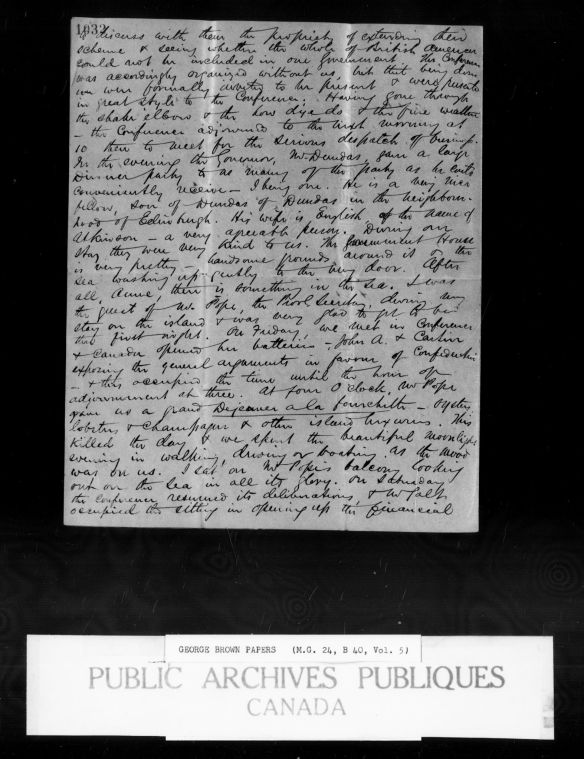 1032
to discuss with them the propriety of extending their
scheme & seeing whether the whole of British America
could not be included in one government. The Conference
was accordingly organized without us, but that being done
we were formally invited to be present & were presented
in great style to the Conference. Having gone through
the shake elbow & the how dye do & the fine weather
– the Conference adjourned to the next morning at
10 then to meet for the serious despatch of business.
In the evening the Governor, Mr Dundas gave a large
Dinner party to as many of the party as he could
conveniently receive – I being one. He is a very nice
fellow, son of Dundas of Dundas in the neighbour-
hood of Edinburgh. His wife is English of the name of
Atkinson – a very agreeable person. During our
stay they were very kind to us. The Government House
is very pretty – handsome grounds around it & the
sea washing up gently to the very door. After
all, Anne, there is something in the sea. I was
the guest of Mr Pope, the Provl Secretary, during my
stay on the island & was very glad to get to bed
the first night. On Friday, we met in Conference
& Canada opened her batteries – John A. & Cartier
exposing the general arguments in favour of Confederation
– & this occupied the time until the hour of
adjournment at three. At four O'clock, Mr Pope
gave us a grand Dejeuner a la fourchette – oysters,
lobsters & champagne & other island luxuries. This
killed the day & we spent the beautiful moonlight
evening in walking, driving or boating as the mood
was on us. I sat on Mr Pope's balcony looking
out on the sea in all its glory. On Saturday
the Conference resumed its deliberations & Mr Galt
occupied the sitting in opening up the financial
GEORGE BROWN PAPERS (M.G. 24, B 40, Vol. 5)
PUBLIC ARCHIVES PUBLIQUES
CANADA